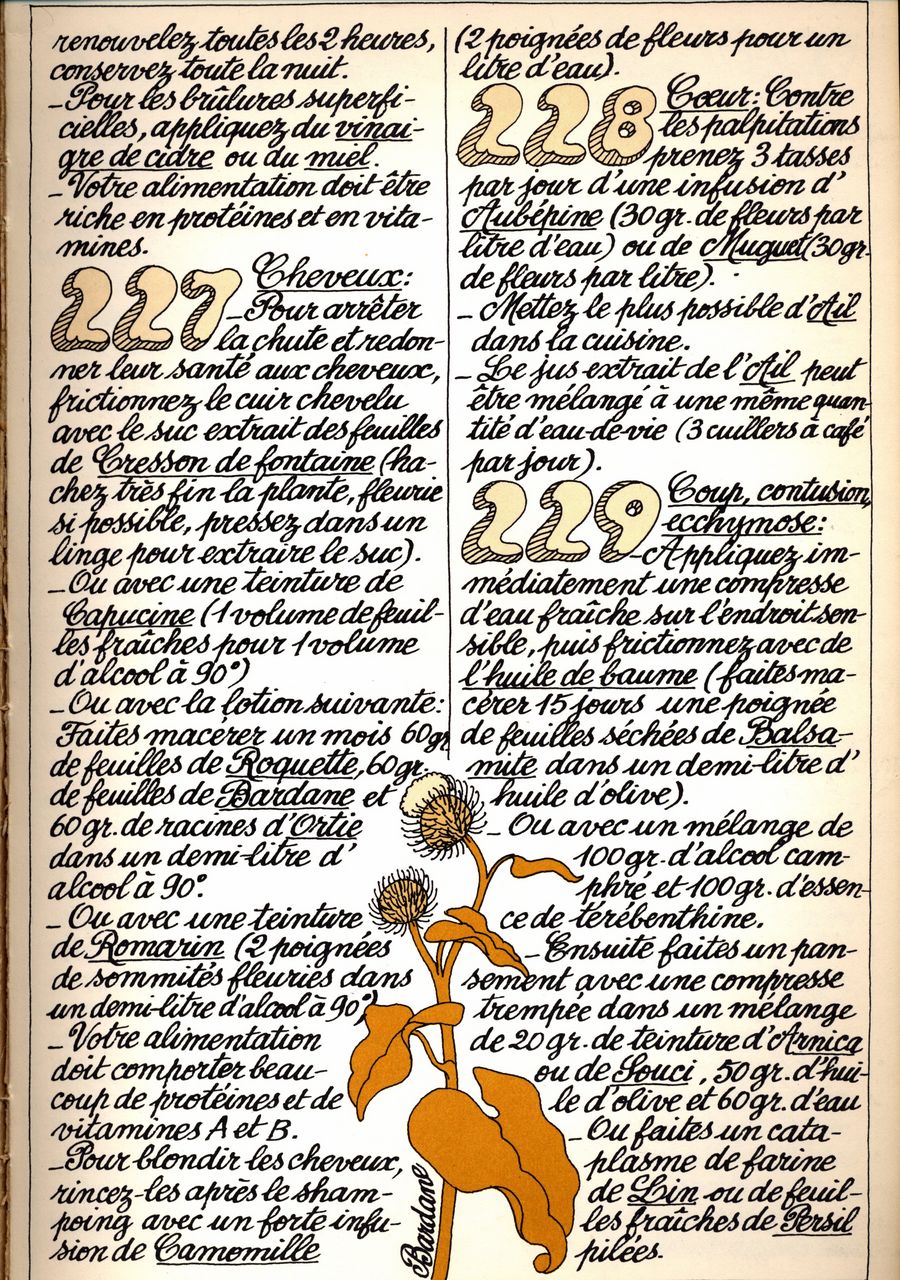 renouvelez toutes les 2 heures,
conservez toute la nuit.
_Pour les brûlures superfi-
cielles, appliquez du vinai-
gre de cidre ou du miel.
_Votre alimentation doit être
riche en protéines et en vita-
mines.
227 Cheveux:
_Pour arrêter
la chute et redon-
ner leur santé aux cheveux,
frictionnez le cuir chevelu
avec le suc extrait des feuilles
de Cresson de fontaine (ha-
chez très fin la plante, fleurie
si possible, pressez dans un
linge pour extraire le suc).
_Ou avec une teinture de
Capucine (1 volume de feuil-
les fraîches pour 1 volume
d'alcool à 90°)
_Ou avec la lotion suivante:
Faites macérer un mois 60gr
de feuilles de Roquette, 60gr.
de feuilles de Bardane et
60gr. de racines d'Ortie
dans un demi-litre d'
alcool à 90°.
_Ou avec une teinture
de Romarin (2 poignées
de sommités fleuries dans
un demi-litre d'alcool à 90°)
_Votre alimentation
doit comporter beau-
coup de protéines et de
vitamines A et B.
_Pour blondir les cheveux,
rincez-les après le sham-
poing avec un forte infu-
sion de Camomille
(2 poignées de fleurs pour un
litre d'eau).
228 Cœur: Contre
les palpitations
prenez 3 tasses
par jour d'une infusion d'
Aubépine (30gr. de fleurs par
litre d'eau) ou de Muguet (30gr.
de fleurs par litre).
_Mettez le plus possible d'Ail
dans la cuisine.
_Le jus extrait de l'Ail peut
être mélangé à une même quan-
tité d'eau-de-vie (3 cuillers à café
par jour).
229 Coup, contusion,
ecchymose:
_Appliquez im-
médiatement une compresse
d'eau fraîche sur l'endroit sen-
sible, puis frictionnez avec de
l'huile de baume (faites ma-
cérer 15 jours une poignée
de feuilles séchées de Balsa-
mite dans un demi-litre d'
huile d'olive).
_Ou avec un mélange de
100gr. d'alcool cam-
phré et 100gr. d'essen-
ce de térébenthine.
_Ensuite faites un pan-
sement avec une compresse
trempée dans un mélange
de 20gr. de teinture d'Arnica
ou de Souci, 50gr. d'hui-
le d'olive et 60gr. d'eau
_Ou faites un cata-
plasme de farine
de Lin ou de feuil-
les fraîches de Persil
pilées.
Bardane